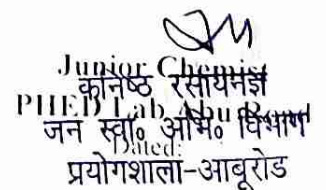 Junior Chemist
कनिष्ठ रसायनज्ञ
PHED Lab Abu Road
जन स्वा० अभि० विभाग
Dated:
प्रयोगशाला-आबूरोड